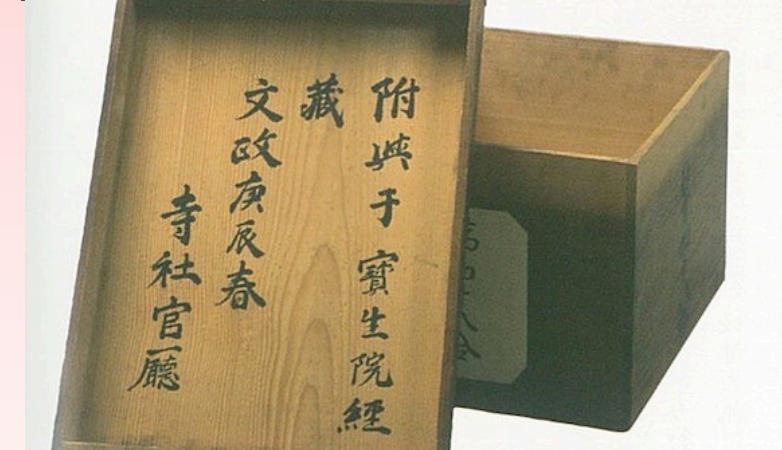 附與于寶生院經
藏
文政庚辰春
寺社官廳